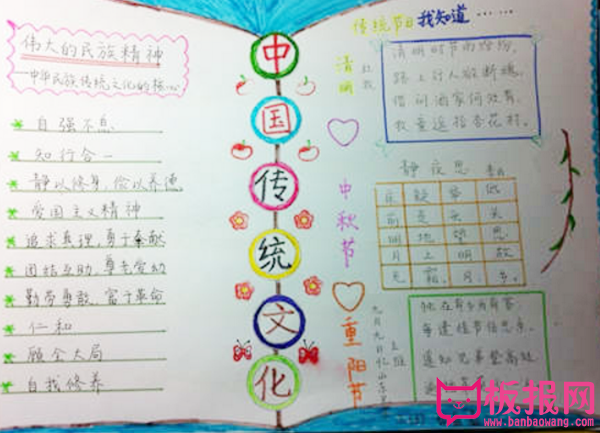 伟大的民族精神
—中华民族传统文化的核心
自强不息
知行合一
静以修身,俭以养德
爱国主义精神
追求真理,勇于奉献
团结互助,尊老爱幼
勤劳勇敢,富于革命
仁和
顾全大局
自我修养
中国传统文化
传统节日我知道……
清明
杜牧
清明时节雨纷纷,
路上行人欲断魂。
借问酒家何处有,
牧童遥指杏花村。
中秋节
静夜思
床 疑 举 低
前 是 头 头
明 地 望 思
月 上 明 故
光 霜。 月, 乡。
重阳节
九月九日忆山东兄
王维
独在异乡为异客,
每逢佳节倍思亲。
遥知兄弟登高处,
板报网
www.banbaowang.com